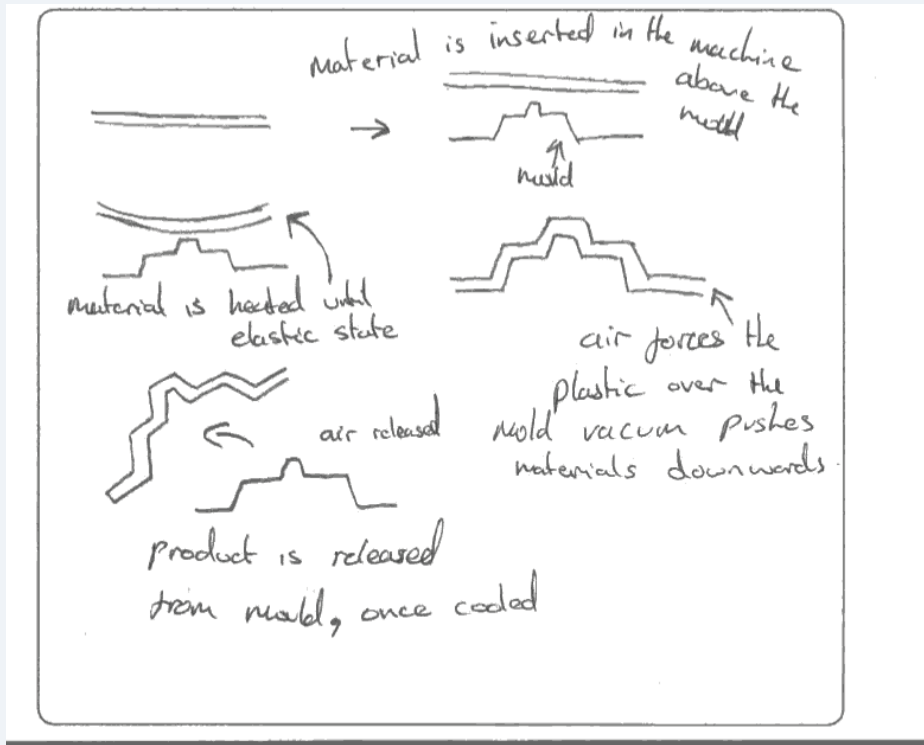 Material is inserted in the machine
above the
mould
mould
material is heated until
elastic state
air forces the
plastic over the
mold vacuum pushes
materials downwards
air released
product is released
from mould, once cooled